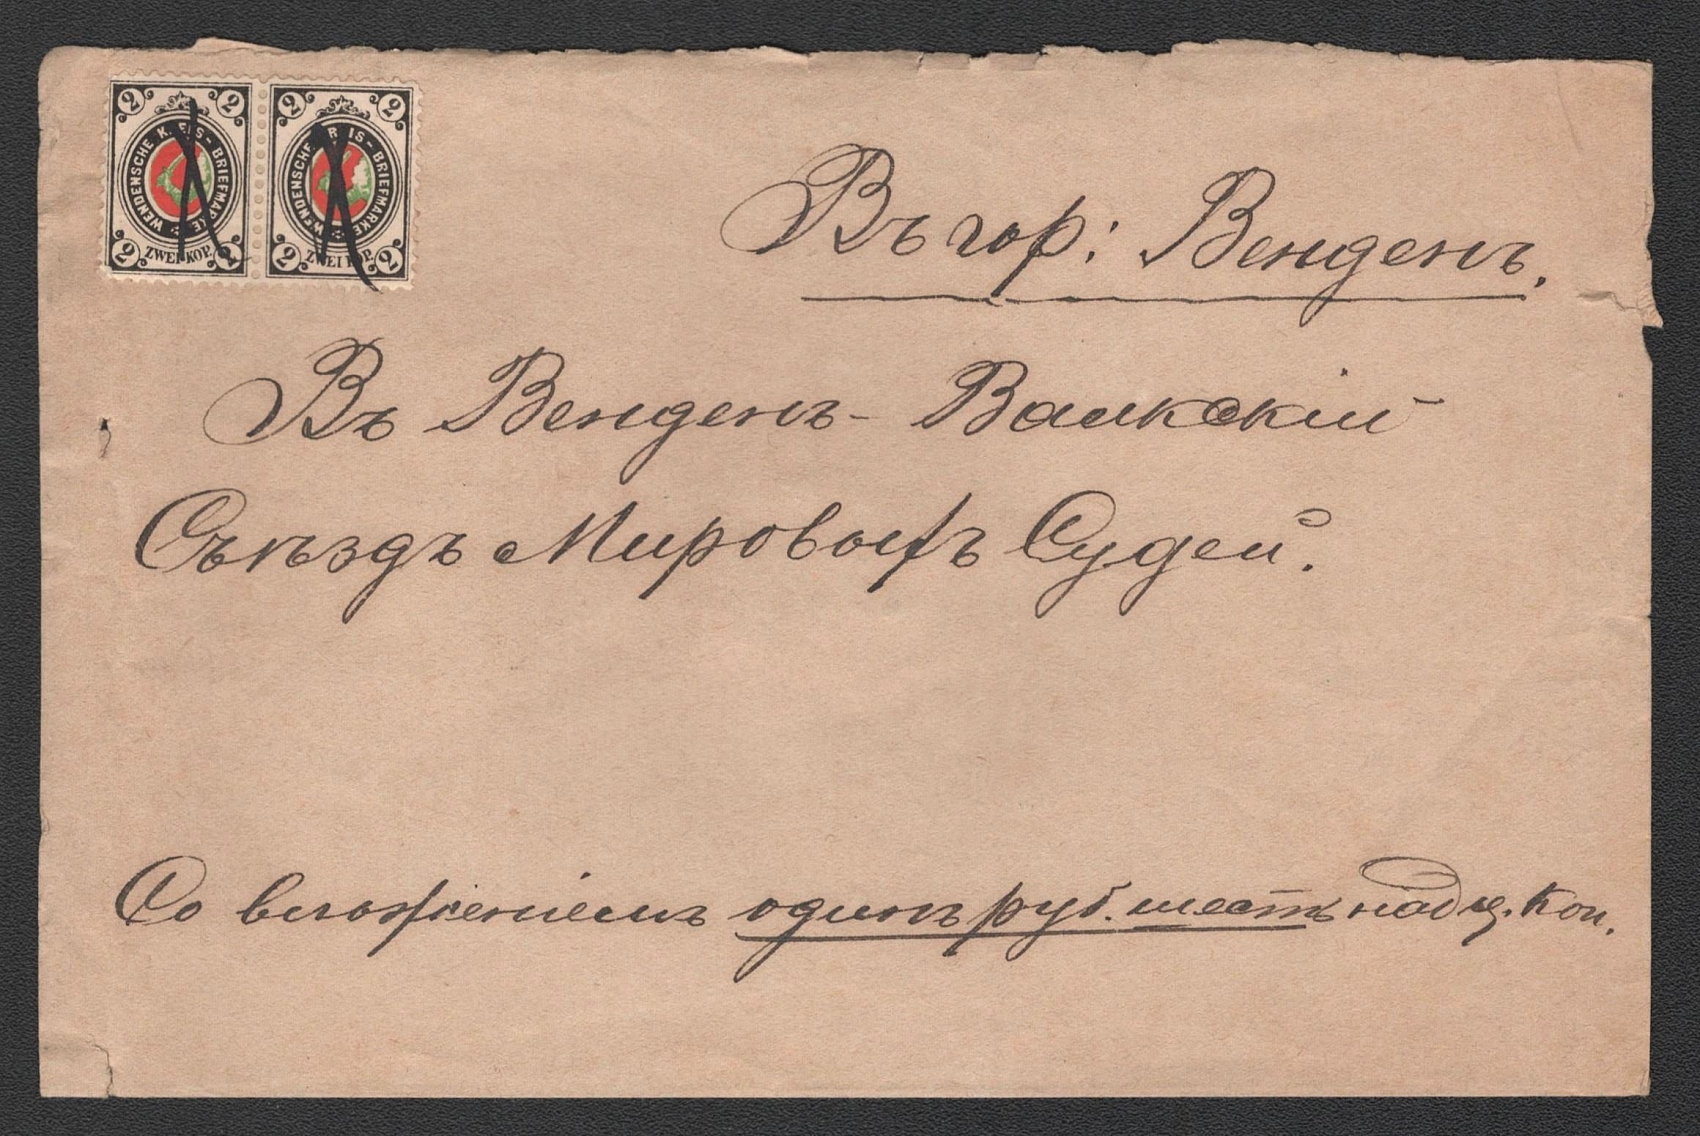 2 2 2 2
WENDENSCHE KREIS-BRIEFMARKE
ZWEI KOP.
2 2 2 2
WENDENSCHE KREIS-BRIEFMARKE
ZWEI KOP.
Въ гор: Венденъ.
Въ Венденъ-Валкскій
Съѣздъ Мировыхъ Судей.
Со вложеніемъ одинъ руб. шестнадц. коп.